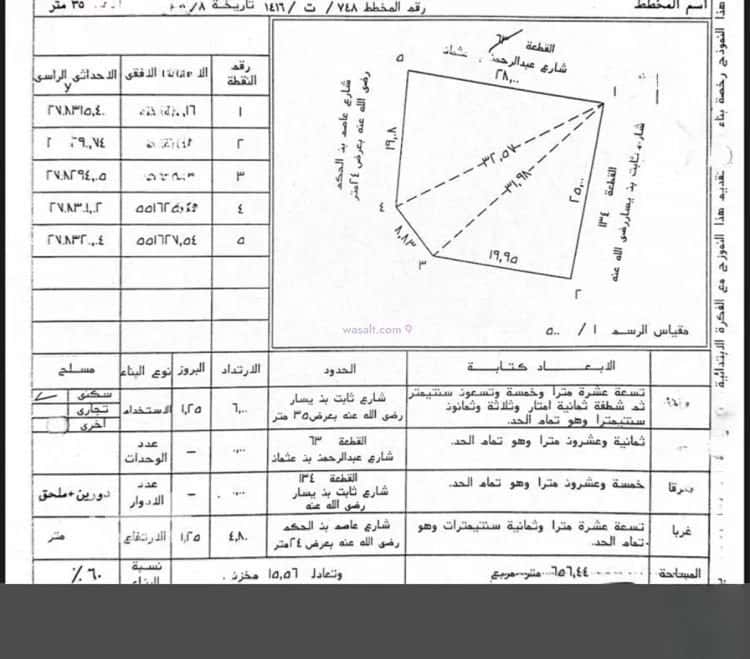 اسم المخطط
رقم المخطط ٧٤٨/ ت /١٤١٦ تاريخة
٣٥ متر
القطعة ٦٣
شارع عبدالرحمن بن عثمان
٢٨,٠٠
١
٥
شارع عاصم بن الحكم
رضي الله عنه بعرض ٢٤ متر
١٩,٠٨
٣٢,٥٧
٣١,٩٨
٢٥,٠٠
القطعة ١٣٤
شارع ثابت بن يسار رضي الله عنه
٤
٨,٨٣
٣
١٩,٩٥
٢
wasalt.com
مقياس الرسم ١ / ٥٠٠
رقم النقطة
الاحداثي الراسي y
١
٢
٣
٤
٥
٥٥١٦٢٧,٥٤
الابعاد كتابة
الحدود
الارتداد
البروز
نوع البناء
مسلح
تسعة عشرة مترا وخمسة وتسعون سنتيمتر
ثم شطفة ثمانية امتار وثلاثة وثمانون
سنتيمترا وهو تمام الحد.
شارع ثابت بن يسار
رضي الله عنه بعرض ٣٥ متر
٦,٠٠
١,٢٥
الاستخدام
سكني
تجاري
أخرى
ثمانية وعشرون مترا وهو تمام الحد.
القطعة ٦٣
شارع عبدالرحمن بن عثمان
–
عدد الوحدات
شرقا
خمسة وعشرون مترا وهو تمام الحد.
القطعة ١٣٤
شارع ثابت بن يسار
رضي الله عنه
–
عدد الادوار
دورين+ملحق
غربا
تسعة عشرة مترا وثمانية سنتيمترات وهو
تمام الحد.
شارع عاصم بن الحكم
رضي الله عنه بعرض ٢٤ متر
٤,٨٠
١,٢٥
الارتفاع
متر
المساحة
٦٥٦,٤٤ متر مربع
وتعادل ١٥,٥٦ مخزن .
نسبة البناء
٦٠ %
تقديم هذا النموذج مع الفكرة الابتدائية
هذا النموذج رخصة بناء